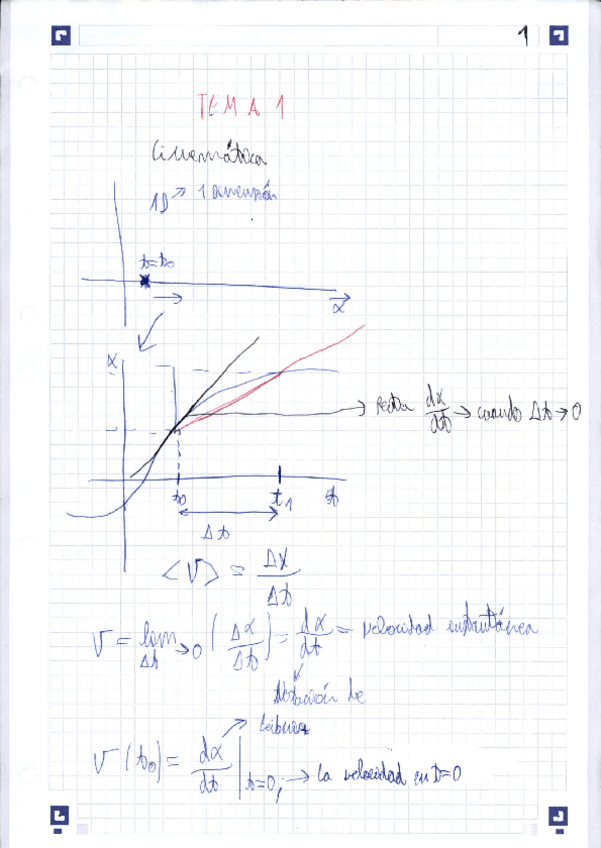 1
TEMA 1
Cinemática
1D → 1 dimensión
t=t₀
x
x
recta dx/dt → cuando Δt → 0
t₀ t₁ t
Δt
<v> = Δx/Δt
v = lim Δt→0 (Δx/Δt) = dx/dt = velocidad instantánea
Notación de
Leibniz
v(t₀) = dx/dt | t=0; → la velocidad en t=0